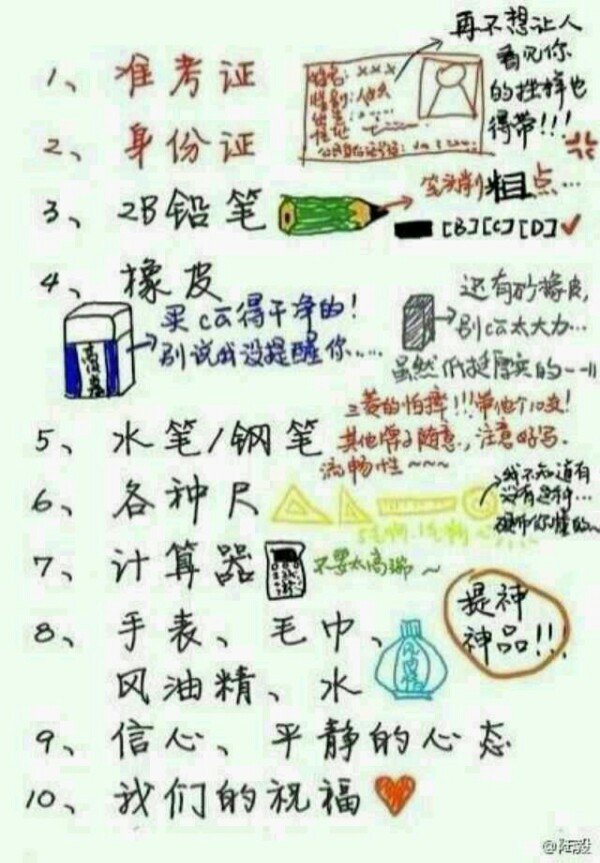 1、准考证
2、身份证
再不想让人
看见你
的挫样也
得带!!!
姓名:×××
3、2B铅笔
笔头削粗点...
[B][C][D]✓
4、橡皮
买ca得干净的!
别说我没提醒你......
还有砂橡皮,
别ca太大力...
虽然纸挺厚实的
5、水笔/钢笔
三菱的怕摔!!!带他个10支!
其他牌子随意,注意好写.
流畅性~~~
6、各种尺
我不知道有
没有这种...
你懂的~
7、计算器
不要太高端~
8、手表、毛巾、
风油精、水
风油精
提神
神品!!!
9、信心、平静的心态
10、我们的祝福
@陆毅